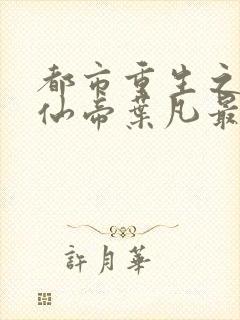 都市重生之
仙帝葉凡最
許月華